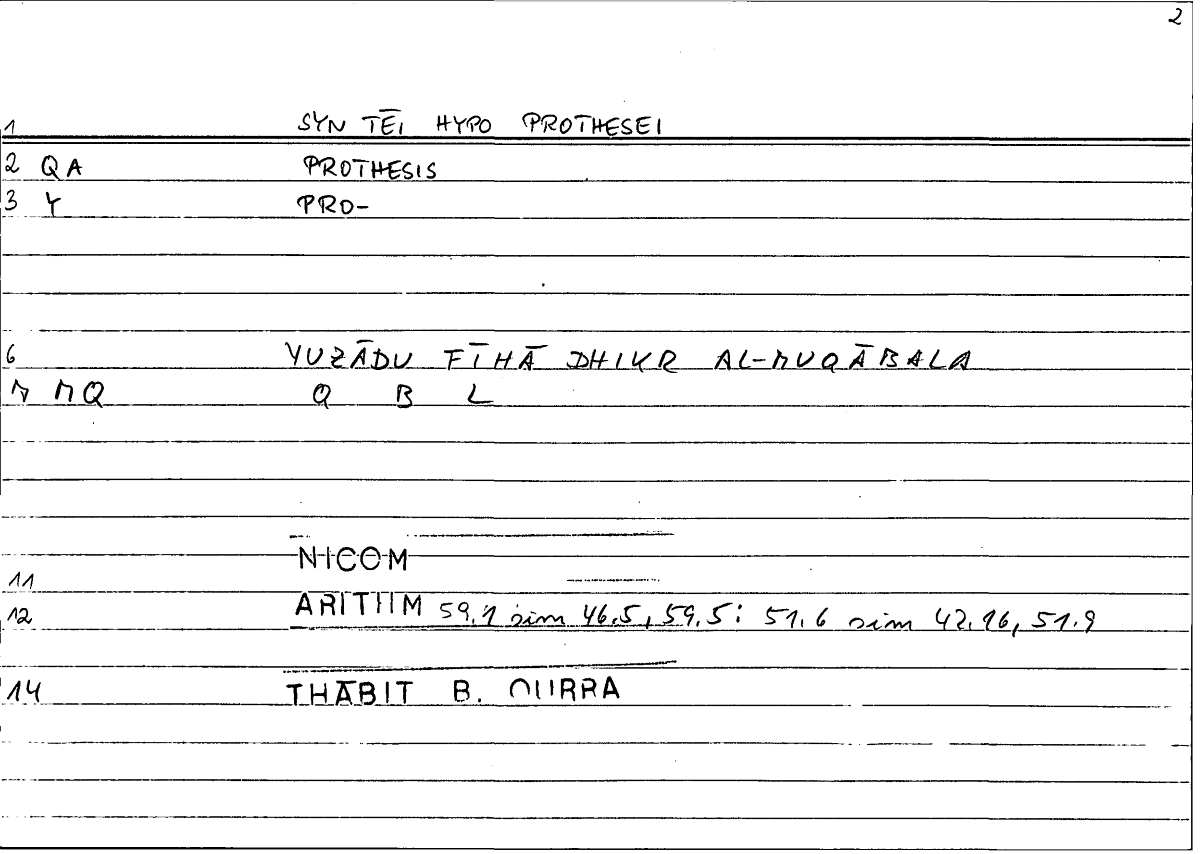 2
1 SYN TĒI HYPO PROTHESEI
2 QA PROTHESIS
3 Y PRO-
6 YUZĀDU FĪHĀ DHIKR AL-MUQĀBALA
MQ Q B L
NICOM
11
12 ARITHM 59.1 sim 46.5, 59.5: 51.6 sim 42.16, 51.9
14 THĀBIT B. QURRA